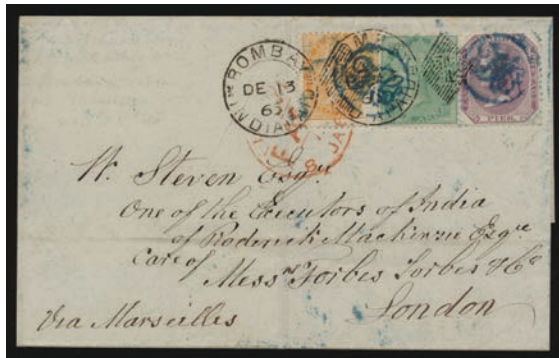 BOMBAY
DE 13
INDIA
PIER
JA
W. Steven Esqre
One of the Executors of India
of Roderick Mackenzie Esqre
Care of
Messrs Forbes Forbes & Co
London
Via Marseilles